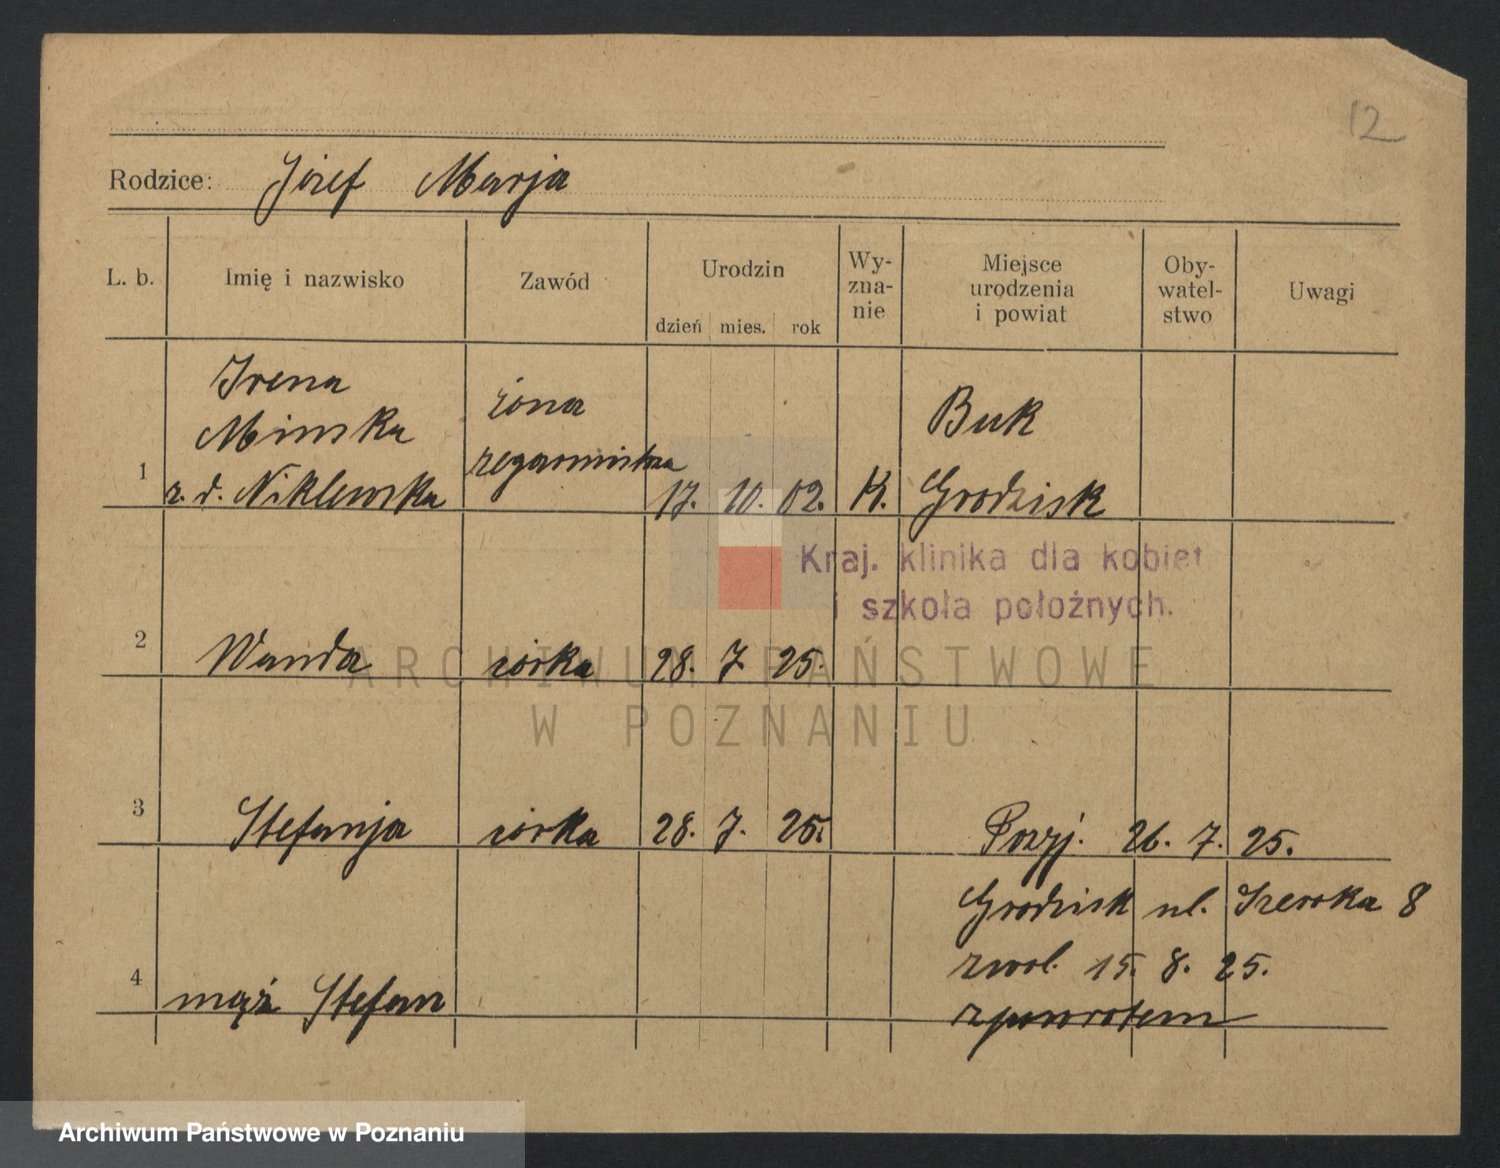 12
Rodzice: Józef Marja
L. b. Imię i nazwisko Zawód Urodzin dzień mies. rok Wy-zna-nie Miejsce urodzenia i powiat Oby-watel-stwo Uwagi
Irena
Minska żona Buk
1 z. d. Niklewska zegarmistrza 17. 10. 02. K. Grodzisk
Kraj. klinika dla kobiet
i szkoła położnych.
2 Wanda córka 28. 7. 25.
ARCHIWUM PAŃSTWOWE
W POZNANIU
3 Stefanja córka 28. 7. 25. Przyj. 26. 7. 25.
Grodzisk ul. Szeroka 8
zwol. 15. 8. 25.
4 mąż Stefan zpowrotem
Archiwum Państwowe w Poznaniu